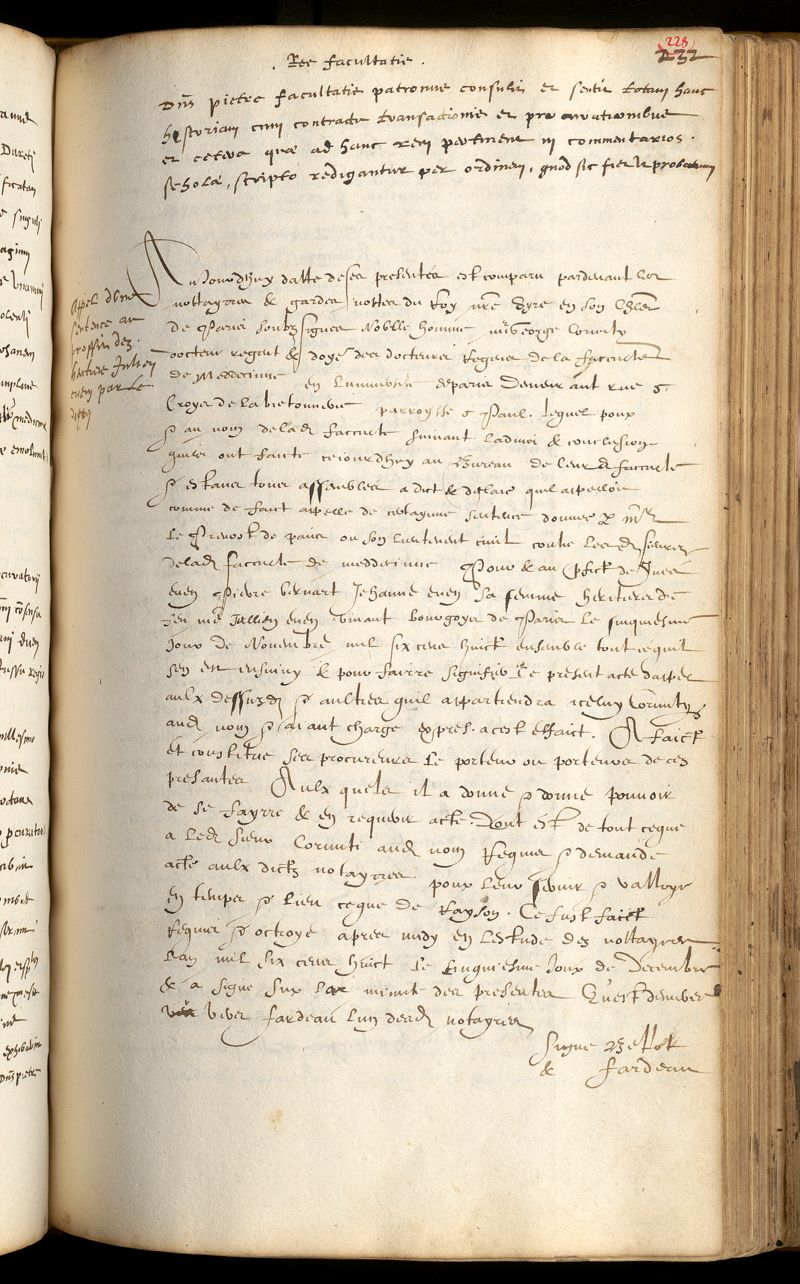 228
232
Res facultatis.
Dns pietre facultatis patronus consuluit et sensit totam hanc
historiam cum contractu transactionis et procurationibus
et cetera quae ad hanc rem pertinent in commentarios
scholae, scripto redigantur per ordinem, quod sic fieri probatum
Appel d'une
sentence au
proffit des
Julien
euen par le
Aujourdhuy datte de ses presentes est comparu pardeuant les
nottayres & gardes nottes du Roy nre Syre en son Chlet
de Paris soubz signez Noble homme me George Cornuty
docteur regent & doyen des docteurs Regens de la faculté
de Medecinne en luniuersité de paris demeurant rue ste
Croyx de la bretonnerie parroysse st Paul. lequel pour
& au nom de lad faculté suiuant laduis & conclusion
quilz ont faicte ce iourdhuy au Bureau de leurd faculté
& estans tous assemblez a dict & declare quil appelloit
comme de faict appelle de certayne sentence donnee p mr
le Preuost de paris ou son lieutenent ciuil contre lesd sieurs
de lad faculté de meddecinne Pour & au proffict de
euen Pierre bernart Jehanne euen sa femme heritiers de
feu me Jullien euen viuant bourgoys de Paris le cinquiesme
Jour de Nouembre mil six cens huict ensemble tout ce quil
sen est ensuiuy & pour fairre signifier le present acte dappel
aulx dessusd & aultres quil appartiendra icelluy Cornuty
aud nom & aiant charge expres a cest effaict. A faict
et constitue ses procureurs le porteur ou porteurs de ces
presantes Aulx quelz il a donne & donne pouuoir
de ce fayrre & en requerir acte. Dont & de tout ceque
a led sieur Cornuti aud nom Requis & demande
acte aulx dictz nottayres pour leur seruir & valloyr
en temps & lieu ceque de Rayson. Ce fust faict
requis & octroye apres midy en lestude des nottayres
lan mil six cens huict le cinquiesme Jour de decembre
& a signe sur la minute des presentes Quest demeuree
vers fardeau lun desd notayres
Signe Bellot
& fardeau